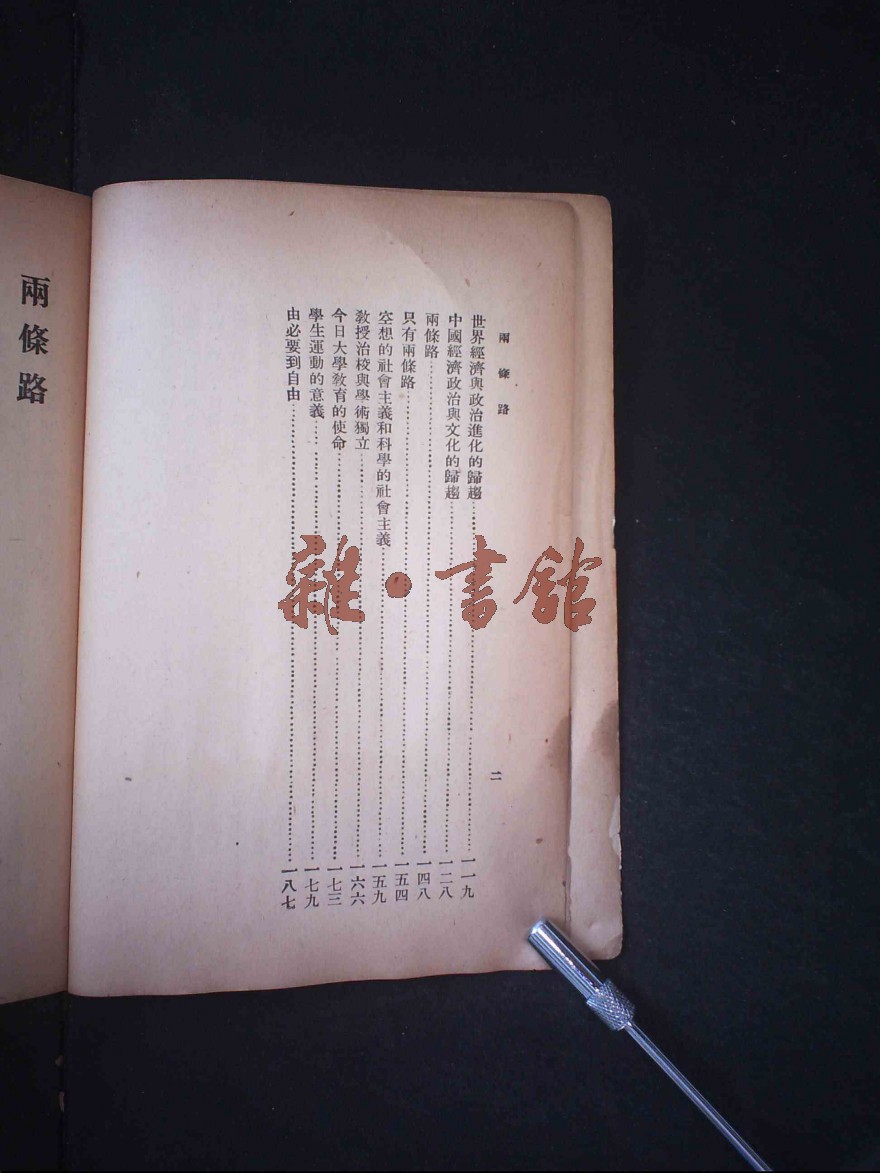 兩條路
世界經濟與政治進化的歸趨……一一九
中國經濟政治與文化的歸趨……一二八
兩條路……一四八
只有兩條路……一五四
空想的社會主義和科學的社會主義……一五九
教授治校與學術獨立……一六六
今日大學教育的使命……一七三
學生運動的意義……一七九
由必要到自由……一八七
二
兩條路
雜·書館